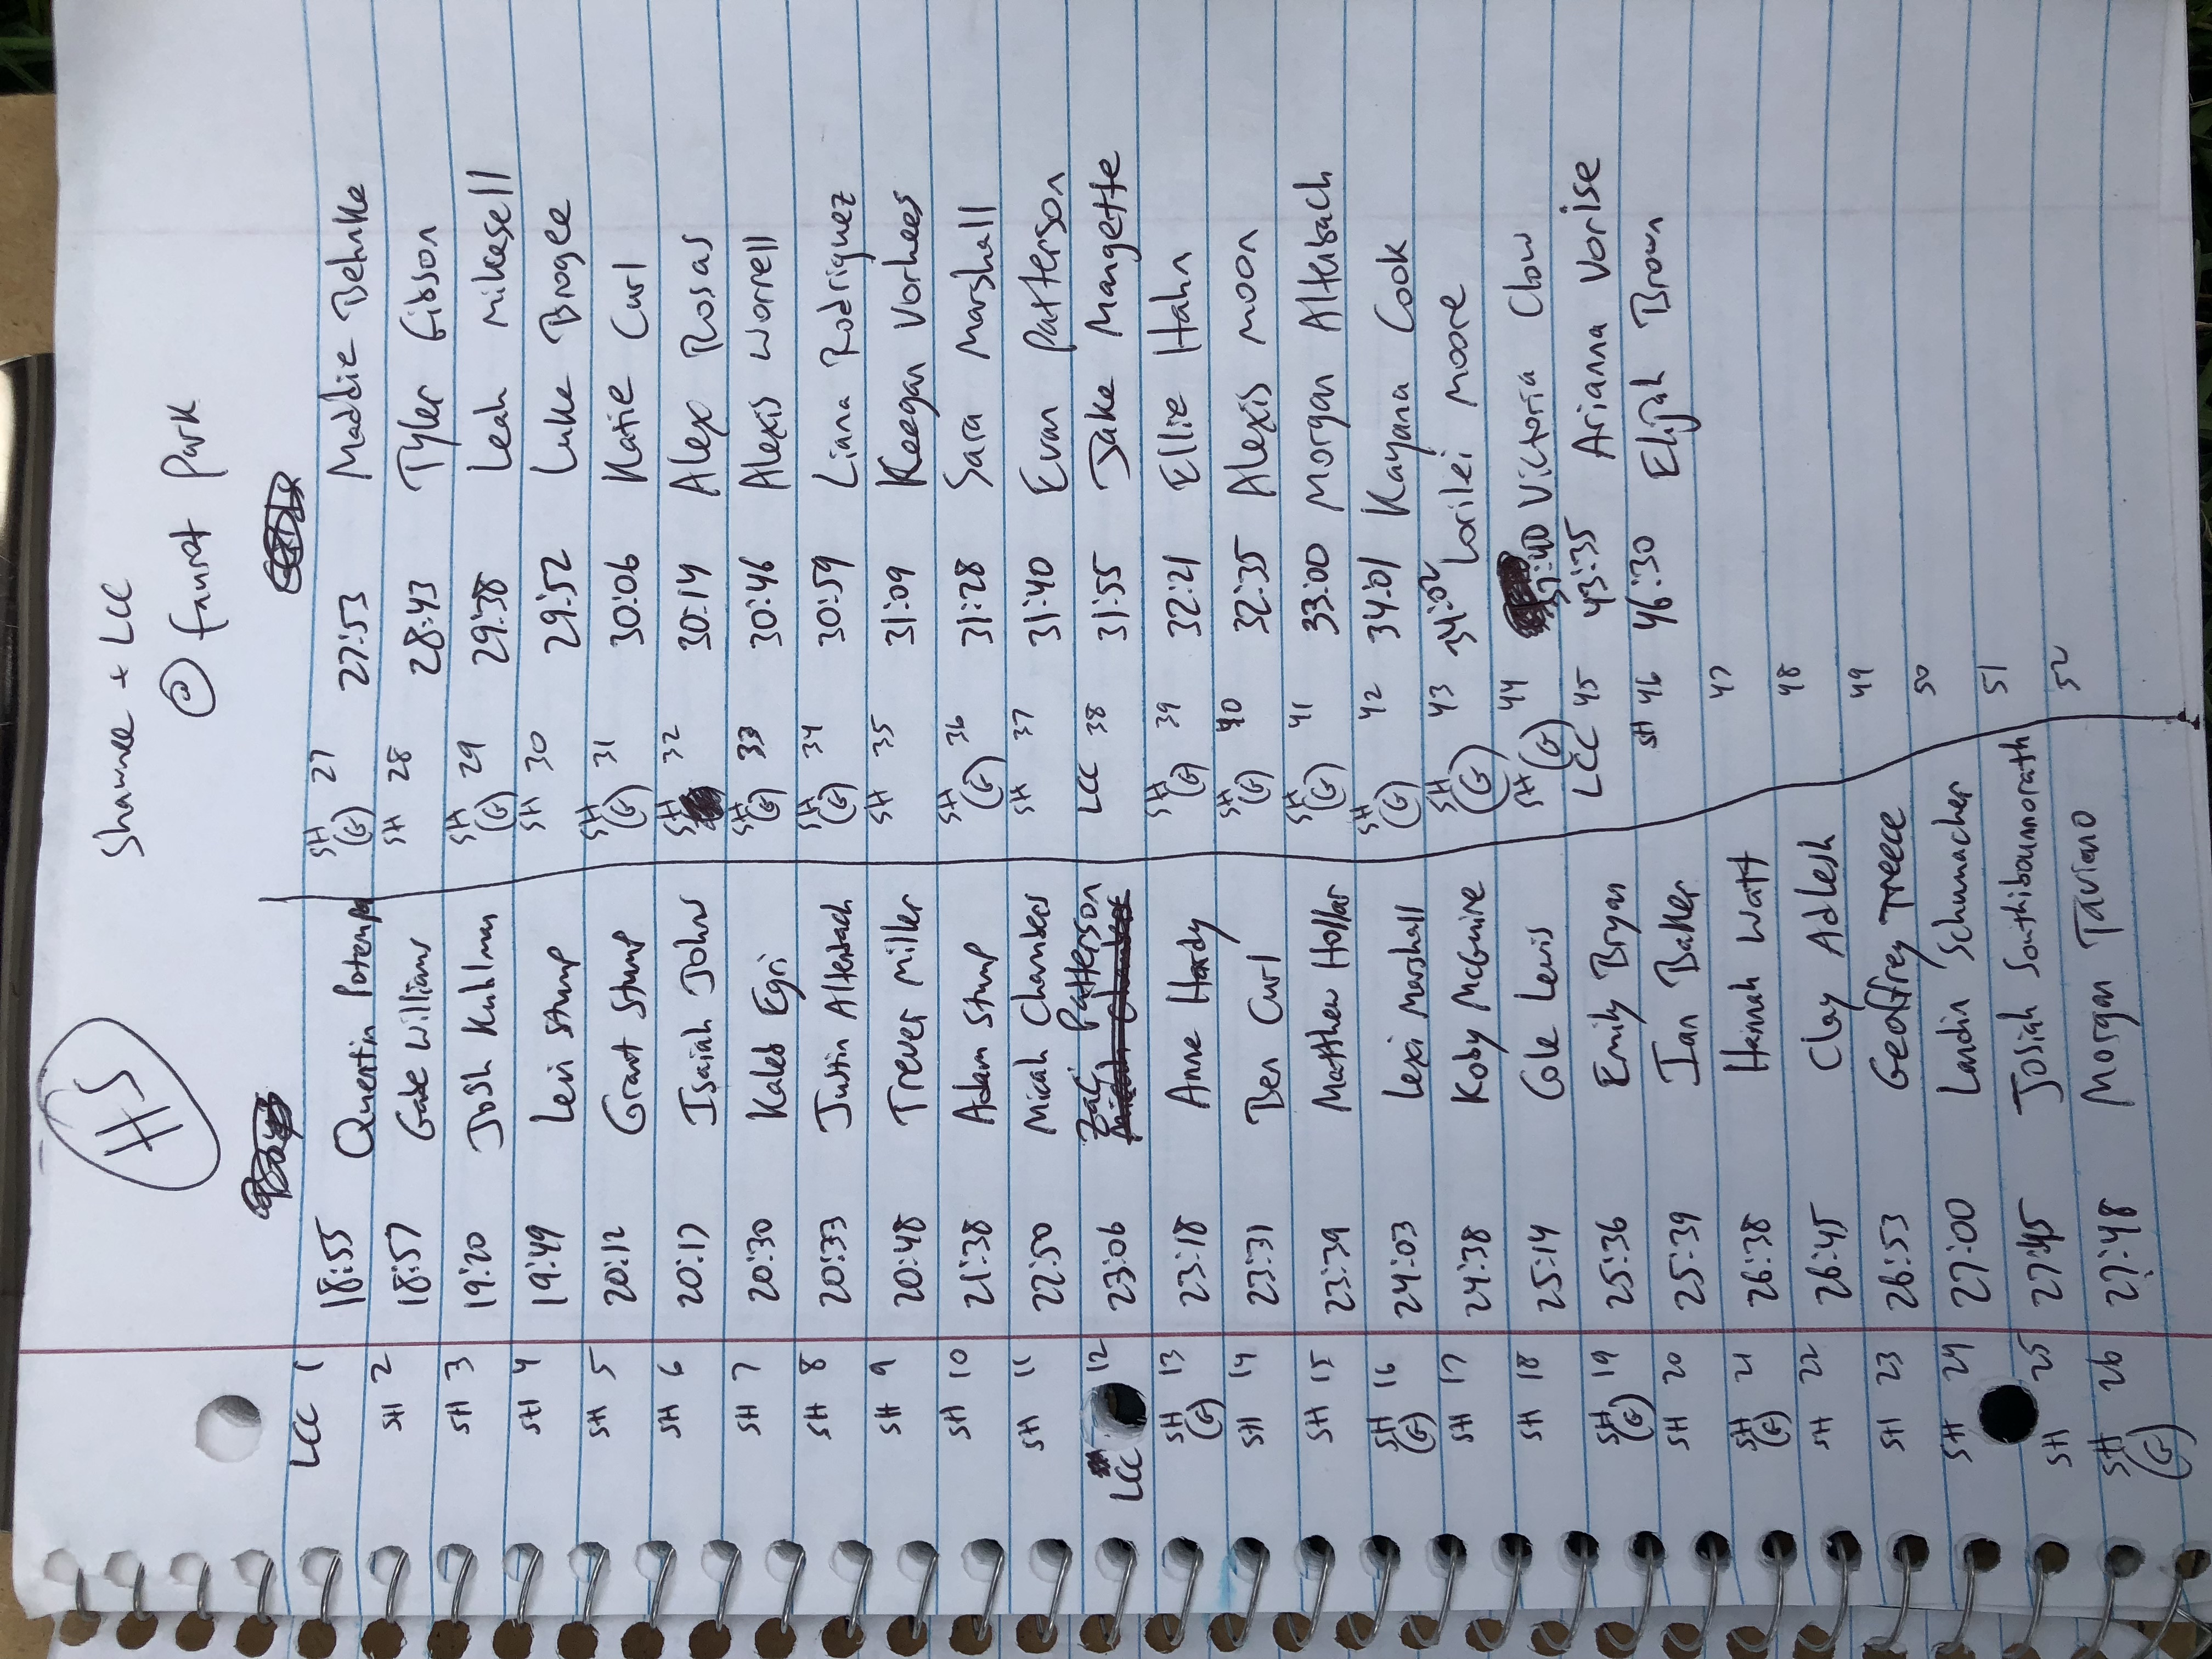 HS
Shawnee + LCC
@ Faurot Park
LCC 1 18:55 Quentin Potempa
SH 2 18:57 Gabe Williams
SH 3 19:20 Josh Kuhlman
SH 4 19:49 Levi Stump
SH 5 20:12 Grant Stump
SH 6 20:17 Isaiah Johns
SH 7 20:30 Kaleb Egri
SH 8 20:33 Justin Altenbach
SH 9 20:48 Trever Miller
SH 10 21:38 Adam Stump
SH 11 22:50 Micah Chambers
LCC 12 23:06 Zac Patterson
SH (G) 13 23:18 Anne Hardy
SH 14 23:31 Ben Curl
SH 15 23:39 Matthew Hollar
SH (G) 16 24:03 Lexi Marshall
SH 17 24:38 Koby McGuire
SH 18 25:14 Cole Lewis
SH (G) 19 25:36 Emily Bryan
SH 20 25:39 Ian Baker
SH (G) 21 26:38 Hannah Watt
SH 22 26:45 Clay Adlesh
SH 23 26:53 Geoffrey Treece
SH 24 27:00 Landin Schumacher
SH 25 27:45 Josiah Southibounnorath
SH (G) 26 27:48 Morgan Taviano
SH (G) 27 27:53 Maddie Behnke
SH 28 28:43 Tyler Gibson
SH (G) 29 29:38 Leah Mikesell
SH 30 29:52 Luke Brogee
SH (G) 31 30:06 Katie Curl
SH 32 30:14 Alex Rosas
SH (G) 33 30:46 Alexis Worrell
SH (G) 34 30:59 Liana Rodriguez
SH 35 31:09 Keegan Vorhees
SH (G) 36 31:28 Sara Marshall
SH 37 31:40 Evan Patterson
LCC 38 31:55 Jake Mangette
SH (G) 39 32:21 Ellie Hahn
SH (G) 40 32:35 Alexis Moon
SH (G) 41 33:00 Morgan Altenbach
SH (G) 42 34:01 Kayana Cook
SH (G) 43 34:02 Lorilei Moore
SH (G) 44 Victoria Clow
LCC 45 43:35 Arianna Vorise
SH 46 46:30 Elijah Brown
47
48
49
50
51
52